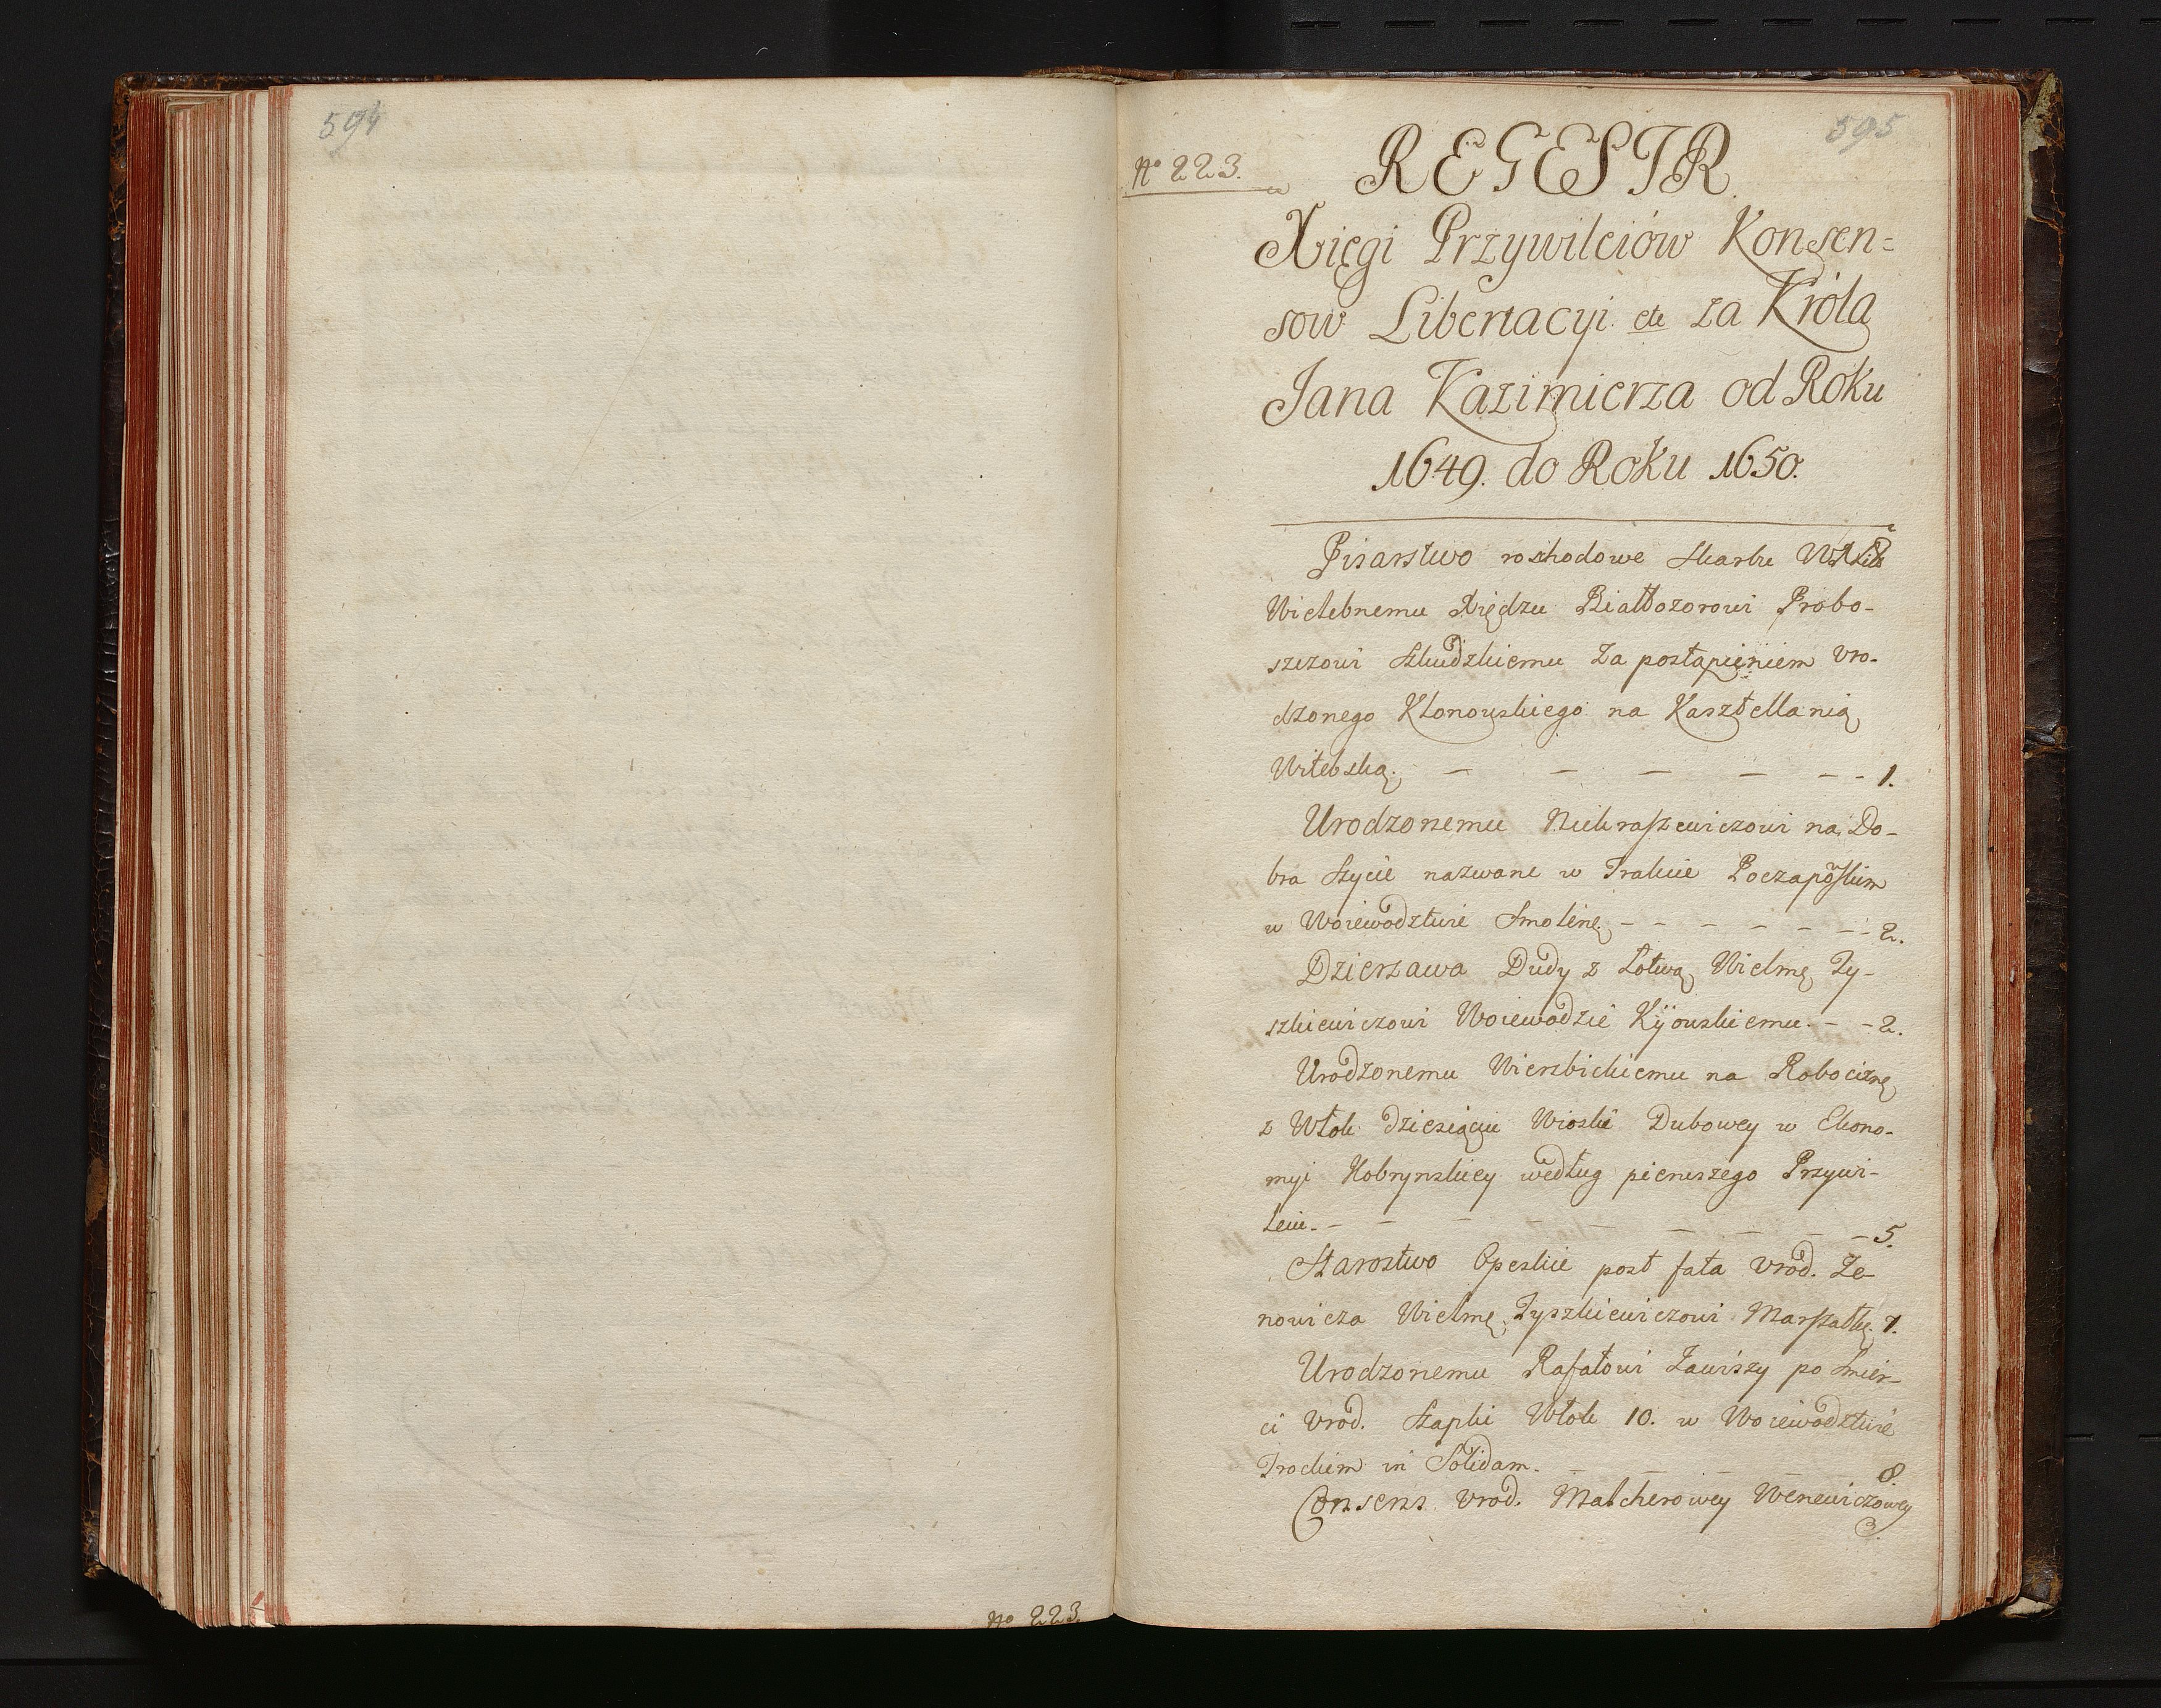 594
No 223.
595
No 223.
REGESTR
Xięgi Przywileiów Konsen=
sow Libertacyi etc za Króla
Jana Kazimierza od Roku
1649. do Roku 1650.
Pisarstwo roschodowe Skarbu
Wielebnemu Xiędzu Białłozorowi Probo-
szczowi Szkudzkiemu za postąpieniem Uro-
dzonego Klonowskiego na Kasztellanią
Witebską. - - - - - - 1.
Urodzonemu Niekraszewiczowi na Do-
bra Szycie nazwane w Trakcie Poczapowskim
w Woiewodztwie Smoleńę - - - - - - - 2.
Dzierzawa Dudy z Łotwą Wielmę Ty-
szkiewiczowi Woiewodzie Kÿowskiemu. - - 2.
Urodzonemu Wierzbickiemu na Robociznę
z Włok dziesiąciu Wioski Dubowey w Ekono-
myi Kobrynskiey według pierwszego Przywi-
leiu. - - - - - - - 5.
Starostwo Opeskie post fata Urod. Ze-
nowicza Wielmę Tyszkiewiczowi Marszałkę. 7.
Urodzonemu Rafałowi Zawiszy po Smier-
ci Urod. Szapki Włok 10. w Woiewodztwie
Trockim in Solidam. - - - - - 8.
Consens Urod. Malcherowey Wenewiczowey